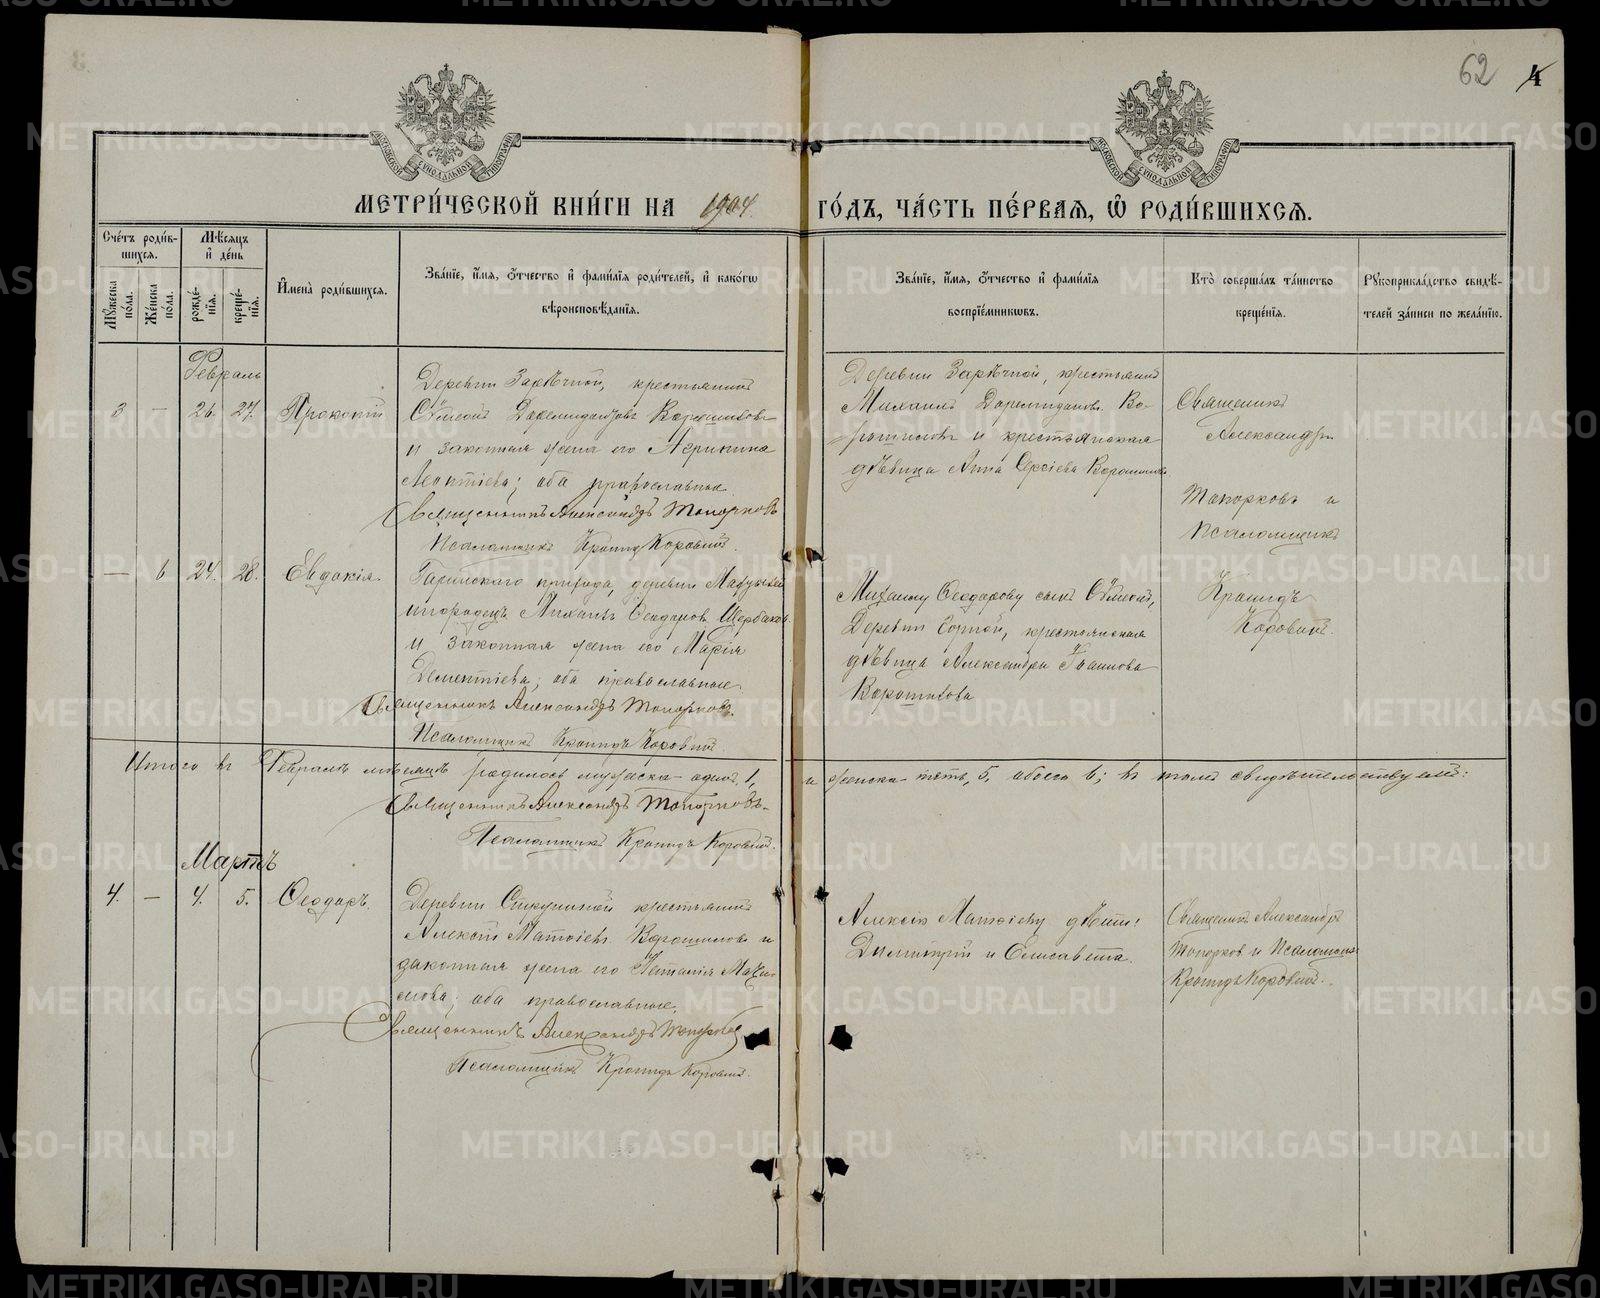 62 4
МЕТРИ́ЧЕСКОЙ КНИ́ГИ НА 1904 ГО́ДЪ, ЧА́СТЬ ПЕ́РВАЯ, Ѡ РОДИ́ВШИХСЯ.
Сче́тъ роди́вшихся.
Мꙋ́жеска пола.
Же́нска пола.
Мѣ́сяцъ и де́нь
рожде́нїя.
креще́нїя.
Имена̀ роди́вшихся.
Зва́нїе, и́мя, о́тчество и фами́лїя роди́телей, и како́гѡ
вѣроисповѣ́данїя.
Зва́нїе, и́мя, о́тчество и фами́лїя
воспрїе́мникѡвъ.
Кто̀ соверша́лъ та́инство
креще́нїя.
Рꙋкоприкла́дство свидѣ́-
телей за́писи по жела́нїю.
Февраль
3 — 26. 27. Прокопій
Деревни Зарѣчной, крестьянинъ
Сѵмеонъ Воротиловъ
и законная жена его Агрипина
Леонтіева; оба православные.
Священникъ Александръ Топорковъ
Псаломщикъ Кронидъ Коровинъ.
Деревни Зарѣчной, крестьянинъ
Михаилъ Во-
ротиловъ и крестьянская
дѣвица Анна Сергіева
Священникъ
Александръ
Топорковъ и
Псаломщикъ
Кронидъ
Коровинъ.
— 6 24. 28. Евдокія.
Гаринскаго прихода, деревни
инородецъ Михаилъ Ѳеодоровъ Щербаковъ
и законная жена его Марія
Дементіева; оба православные.
Священникъ Александръ Топорковъ.
Псаломщикъ Кронидъ Коровинъ.
Михаилу Ѳеодорову сынъ Сѵмеонъ,
Деревни крестьянская
дѣвица Александра Іоаннова
Воротилова
Итого въ Февралѣ мѣсяцѣ родилось мужеска – одинъ 1, и женска – пять, 5, обоего 6; въ томъ свидѣтельствуемъ:
Священникъ Александръ Топорковъ.
Псаломщикъ Кронидъ Коровинъ.
Мартъ
4. — 4. 5. Ѳеодоръ.
Деревни крестьянинъ
Алексѣй Матвіевъ Воротиловъ и
законная жена его Наталія
оба православные.
Священникъ Александръ Топорковъ
Псаломщикъ Кронидъ Коровинъ.
Алексія Матвіеву дѣти:
Димитрій и Елисавета.
Священникъ Александръ
Топорковъ и Псаломщикъ
Кронидъ Коровинъ.
METRIKI.GASO-URAL.RU